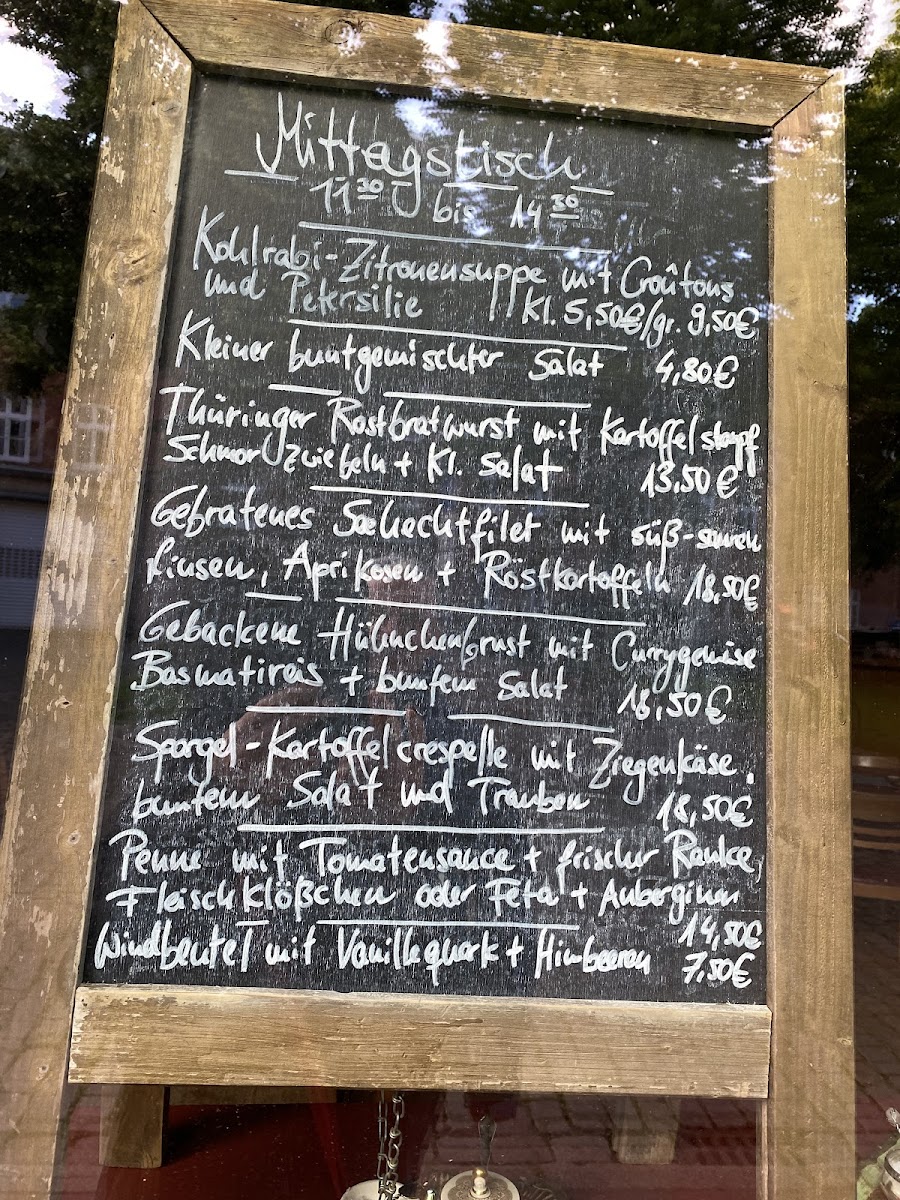 Mittagstisch
11³⁰ bis 14³⁰
Kohlrabi-Zitronensuppe mit Croûtons
und Petersilie Kl. 5,50€/gr. 9,50€
Kleiner buntgemischter Salat 4,80€
Thüringer Rostbratwurst mit Kartoffelstampf
Schmorzwiebeln + Kl. Salat 13,50€
Gebratenes Seehechtfilet mit süß-sauren
Linsen, Aprikosen + Röstkartoffeln 18,50€
Gebackene Hühnchenbrust mit Currygemüse
Basmatireis + buntem Salat 18,50€
Spargel-Kartoffelcrespelle mit Ziegenkäse,
buntem Salat und Trauben 18,50€
Penne mit Tomatensauce + frischer Rauke,
Fleischklößchen oder Feta + Auberginen
14,50€
Windbeutel mit Vanillequark + Himbeeren 7.50€